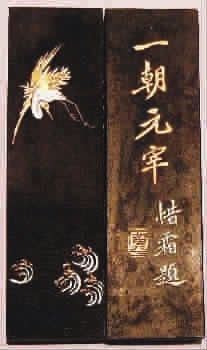 一朝元宰
惜霜題